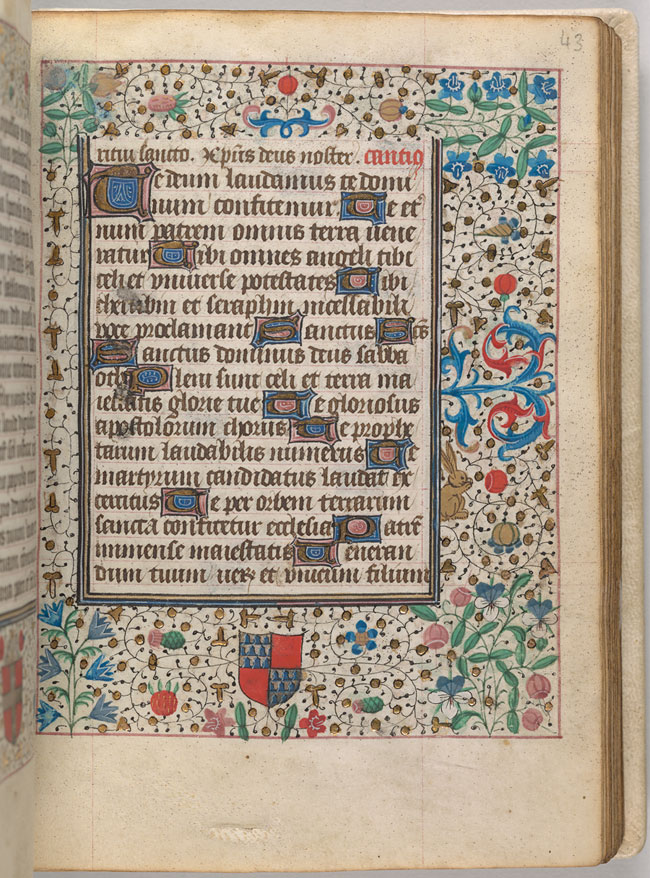 43
ritui sancto. Xp̄s deus noster. cantiq̄
Te deum laudamus te domi
num confitemur Te et
num patrem omnis terra uene
ratur Tibi omnes angeli tibi
celi et vniuerse potestates Tibi
cherubim et seraphin incessabili
voce proclamant Sanctus Sc̄s
Sanctus dominus deus sabba
oth Pleni sunt celi et terra ma
iestatis glorie tue Te gloriosus
apostolorum chorus Te prophe
tarum laudabilis numerus Te
martyrum candidatus laudat ex
ercitus Te per orbem terrarum
sancta confitetur ecclesia Patrē
immense maiestatis Veneran
dum tuum uerū et vnicum filium